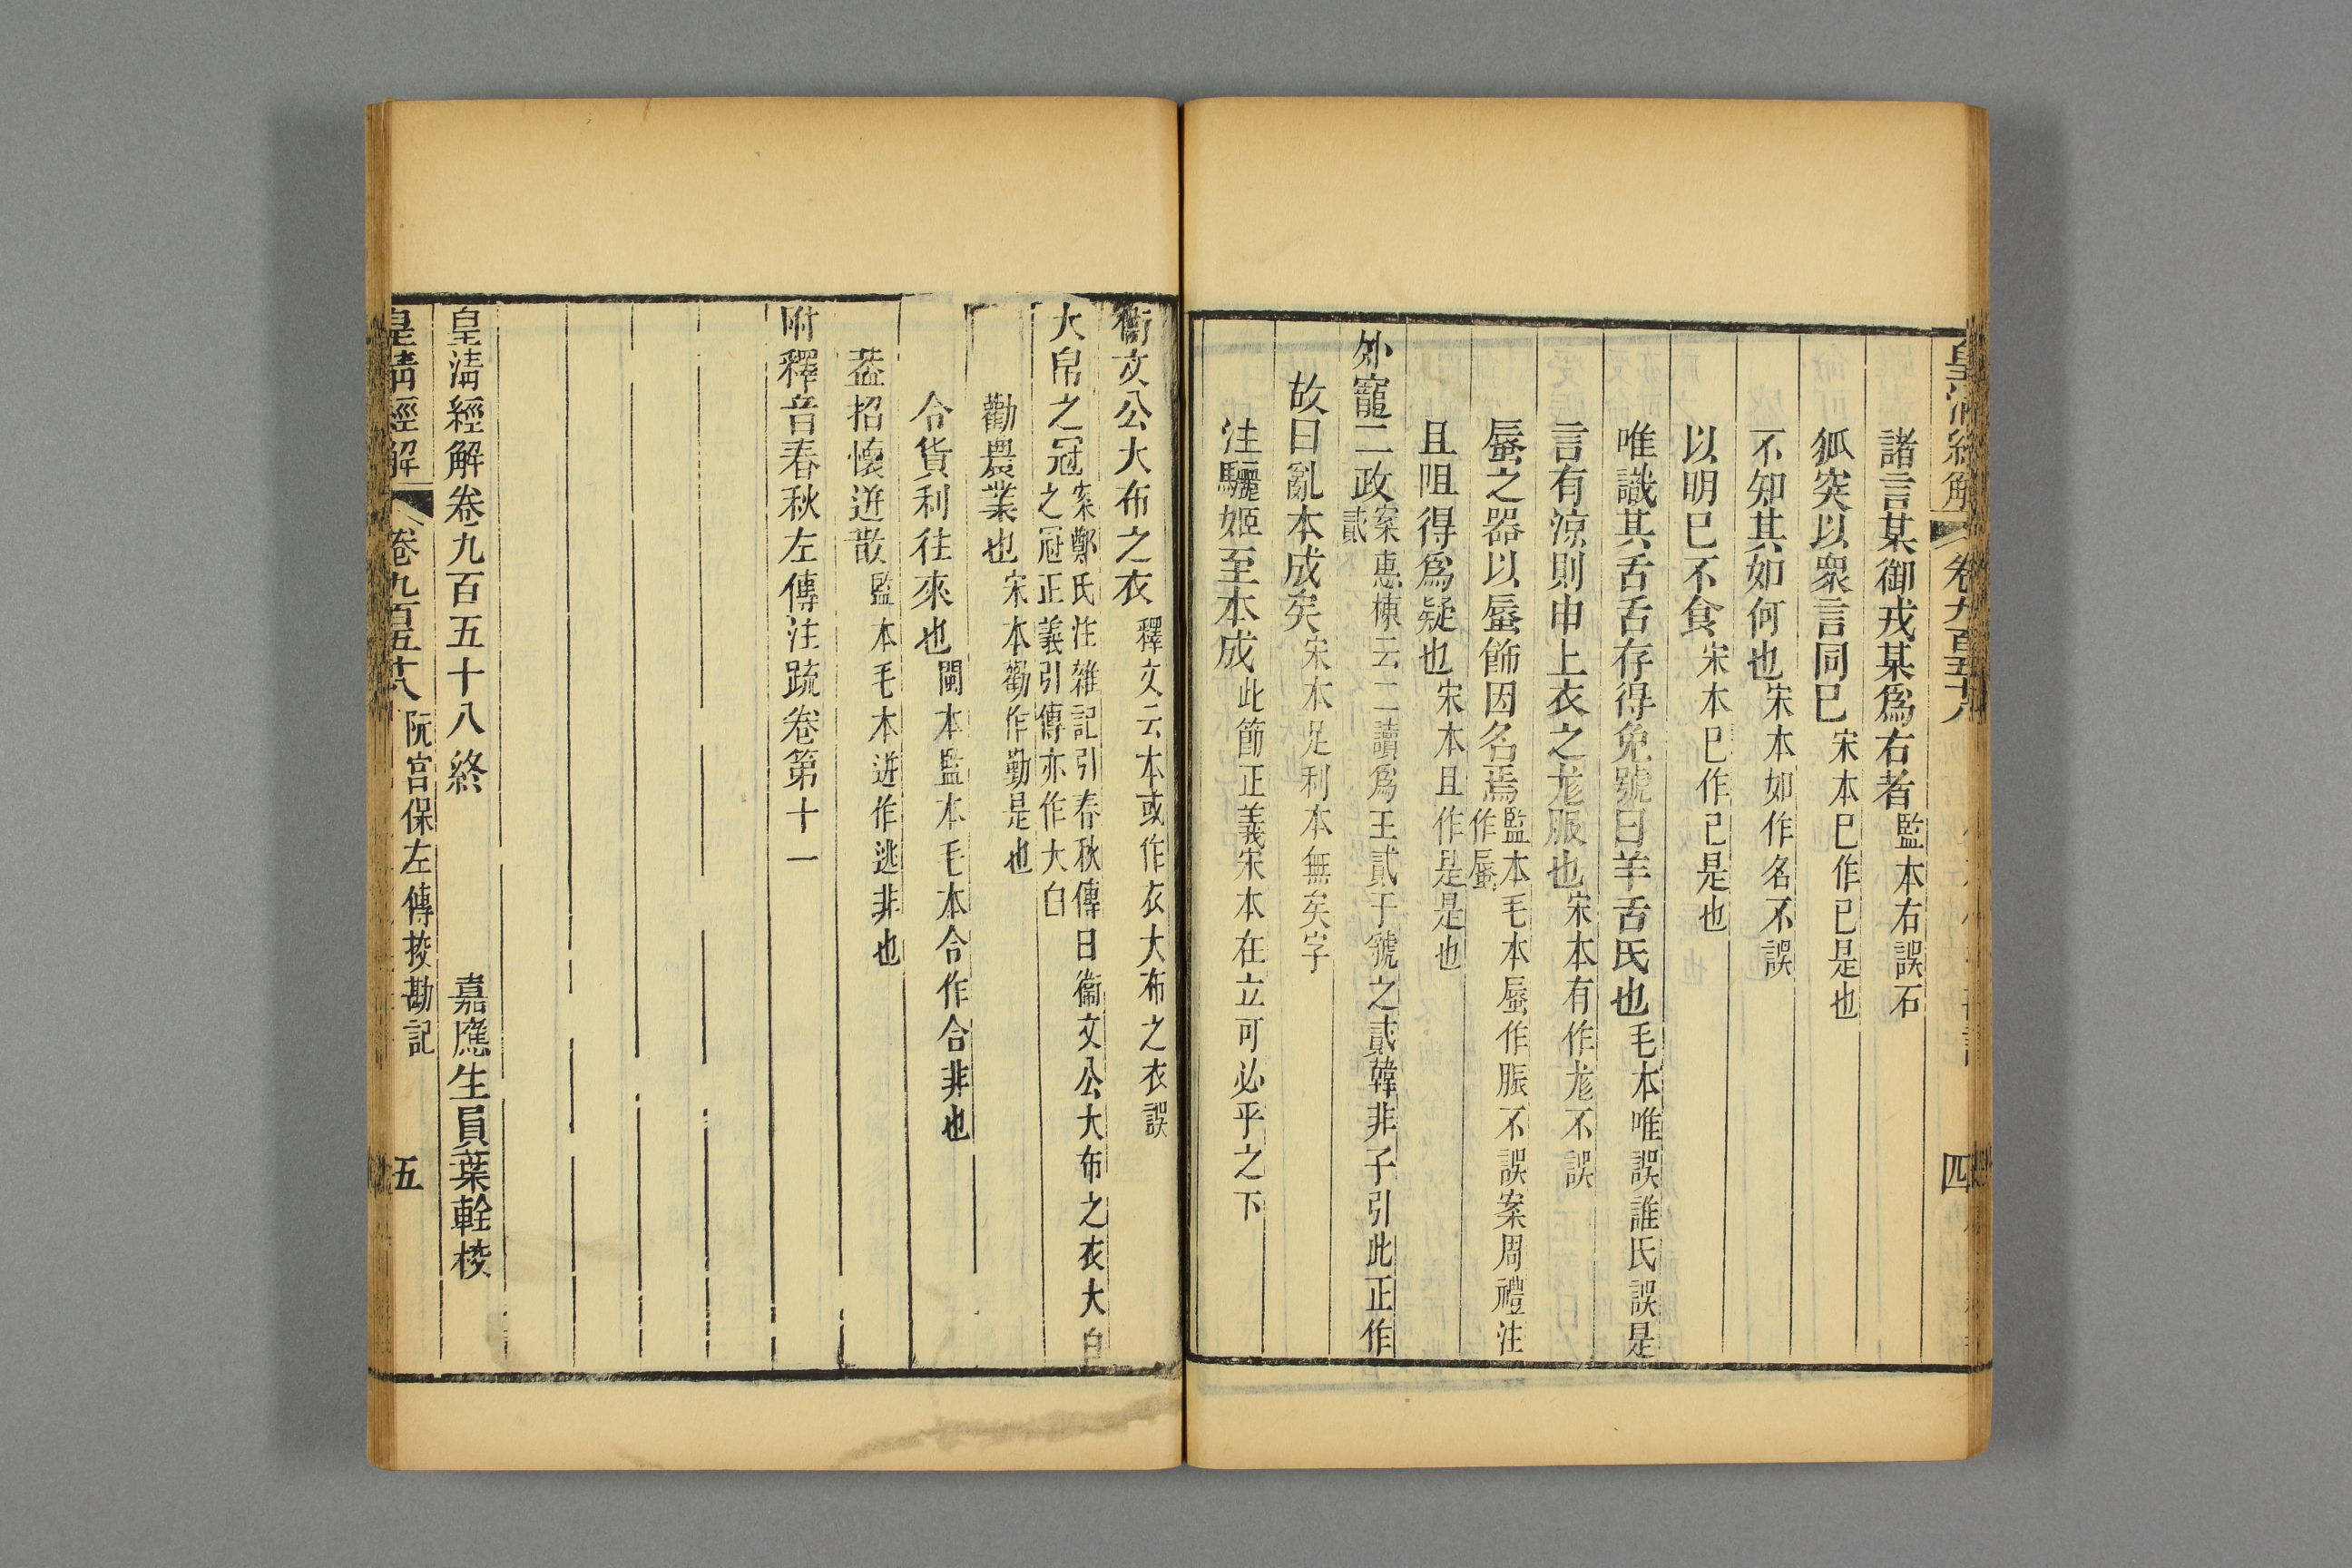 諸言某御戎某爲右者監本右誤石
狐突以衆言同巳宋本巳作已是也
不知其如何也宋本如作名不誤
以明巳不食宋本巳作已是也
唯識其舌舌存得免號曰羊舌氏也毛本唯誤誰氏誤是
言有涼則申上衣之尨服也宋本有作尨不誤
蜃之器以蜃飾因名焉監本毛本蜃作脤不誤案周禮注作蜃
且阻得爲疑也宋本且作是是也
外寵二政案惠棟云二讀爲王貳于虢之貳韓非子引此正作貳
故曰亂本成矣宋本足利本無矣字
注驪姬至本成此節正義宋本在立可必乎之下
卷九百五十八
四
衞文公大布之衣釋文云本或作衣大布之衣誤
大帛之冠案鄭氏注雜記引春秋傳曰衞文公大布之衣大白之冠正義引傳亦作大白
勸農業也宋本勸作勤是也
令貨利往來也閩本監本毛本令作合非也
葢招懷逬散監本毛本逬作逃非也
附釋音春秋左傳注疏卷第十一
皇清經解卷九百五十八終
嘉應生員葉輇校
皇清經解
卷九百五十八
阮宮保左傳挍勘記
五